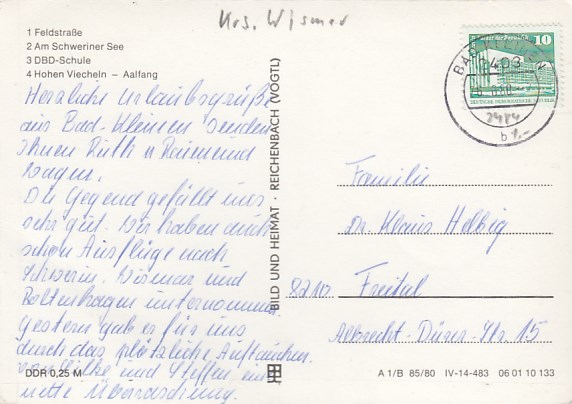 Krs. Wismar
1 Feldstraße
2 Am Schweriner See
3 DBD-Schule
4 Hohen Viecheln – Aalfang
Herzliche Urlaubsgrüße
aus Bad-Kleinen senden
Ihnen Ruth u Raimund
Wagner.
Die Gegend gefällt uns
sehr gut. Wir haben auch
schon Ausflüge nach
Schwerin, Wismar und
Boltenhagen unternommen.
Gestern gab es für uns
durch das plötzliche Auftauchen
von Silke und Steffen eine
nette Überraschung.
DDR 0,25 M
BILD UND HEIMAT · REICHENBACH (VOGTL)
10
DEUTSCHE DEMOKRATISCHE REPUBLIK
BAD KLEINEN
2403
2484
b 1,-
Familie
Dr. Klaus Helbig
8210 Freital
Albrecht-Dürer-Str. 15
A 1/B 85/80 IV-14-483 06 01 10 133